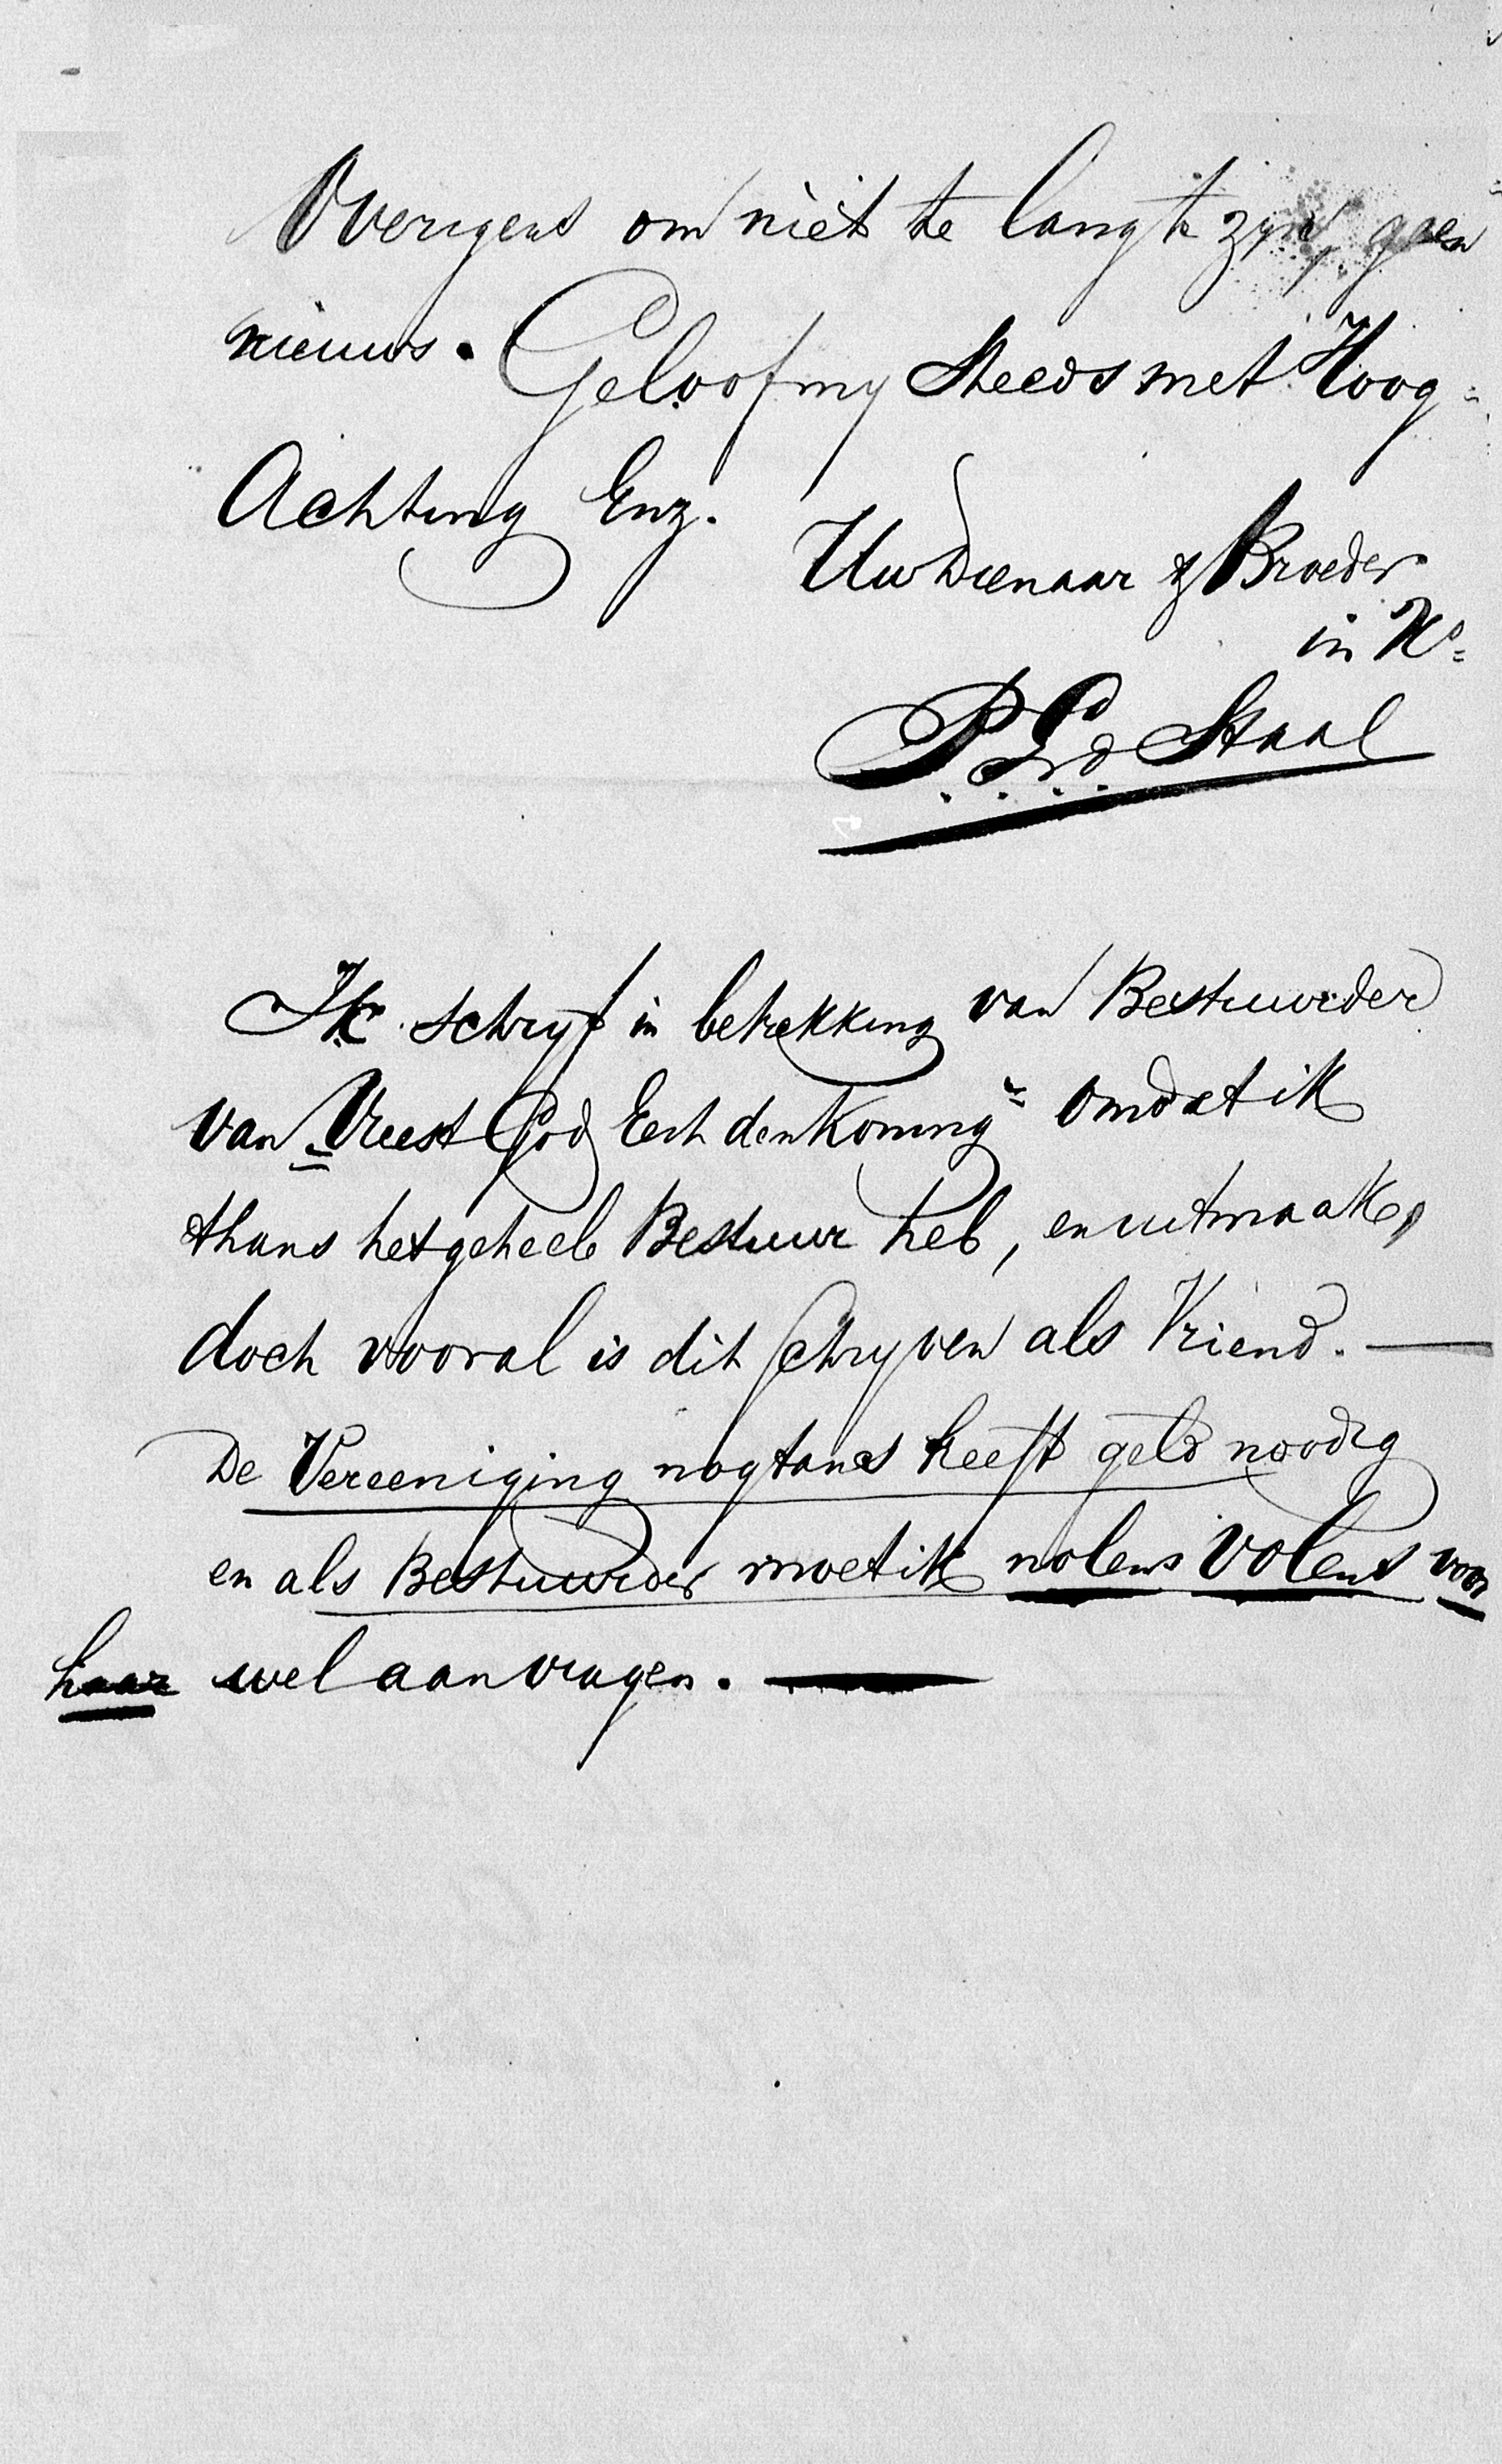 Overigens om niet te lang te zyn, geen
nieuws. Geloof my Steeds met Hoog=
Achting Enz.
Uw Dienaar & Broeder
in
P. Staal
Ik schryf in betrekking van Bestuurder
van "Vreest God Eert den Koning" omdat ik
thans het geheele Bestuur heb, en uitmaak,
doch vooral is dit schryven als Vriend. —
De Vereeniging nogtans heeft geld noodig
en als Bestuurder moet ik nolens volens voor
haar wel aanvragen. —